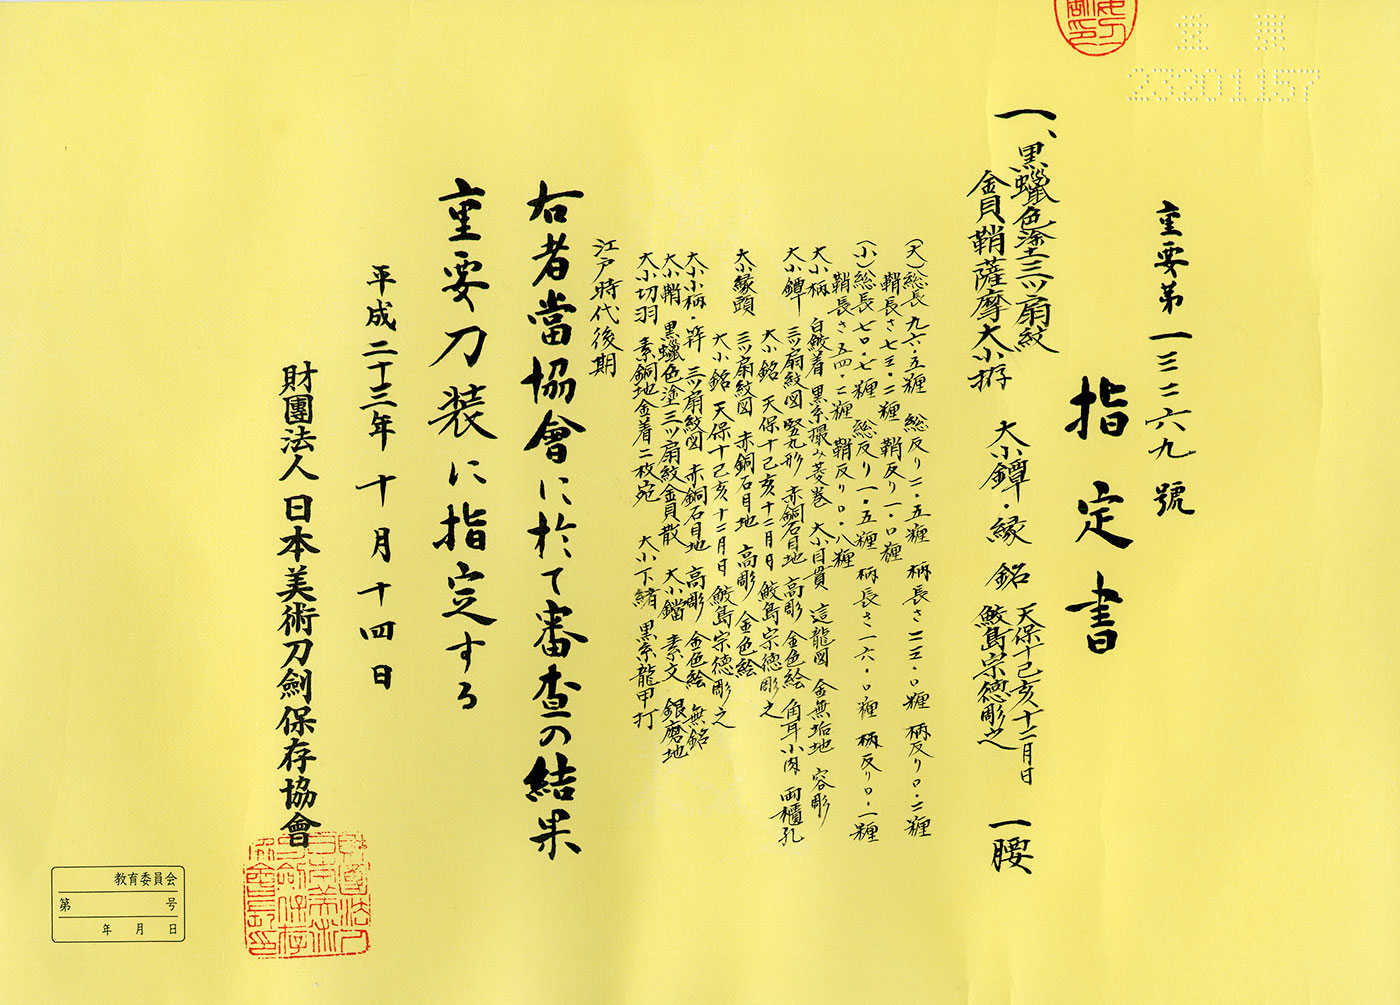 重要
23201157
重要第一三二六九號
指定書
一、黒蠟色塗三ツ扇紋
金貝鞘薩摩大小拵
大小鐔・縁 銘 天保十己亥十二月日
鮫島宗徳彫之
一腰
(大)総長 九六・五糎 総反り 二・五糎 柄長さ 二三・〇糎 柄反り 〇・二糎
鞘長さ 七三・二糎 鞘反り 一・〇糎
(小)総長 七〇・七糎 総反り 一・五糎 柄長さ 一六・〇糎 柄反り 〇・一糎
鞘長さ 五四・二糎 鞘反り 〇・八糎
大小柄 白鮫着 黒糸撮み菱巻 大小目貫 這龍図 金無垢地 容彫
大小鐔 三ツ扇紋図 竪丸形 赤銅石目地 高彫 金色絵 角耳小肉 両櫃孔
大小銘 天保十己亥十二月日 鮫島宗徳彫之
大小縁頭 三ツ扇紋図 赤銅石目地 高彫 金色絵
大小銘 天保十己亥十二月日 鮫島宗徳彫之
大小小柄・笄 三ツ扇紋図 赤銅石目地 高彫 金色絵 無銘
大小鞘 黒蠟色塗三ツ扇紋金貝散 大小鐺 素文 銀磨地
大小切羽 素銅地金着二枚宛 大小下緒 黒糸龍甲打
江戸時代後期
右者當協會に於て審査の結果
重要刀装に指定する
平成二十三年十月十四日
財團法人日本美術刀劍保存協會
教育委員会
第 号
年 月 日